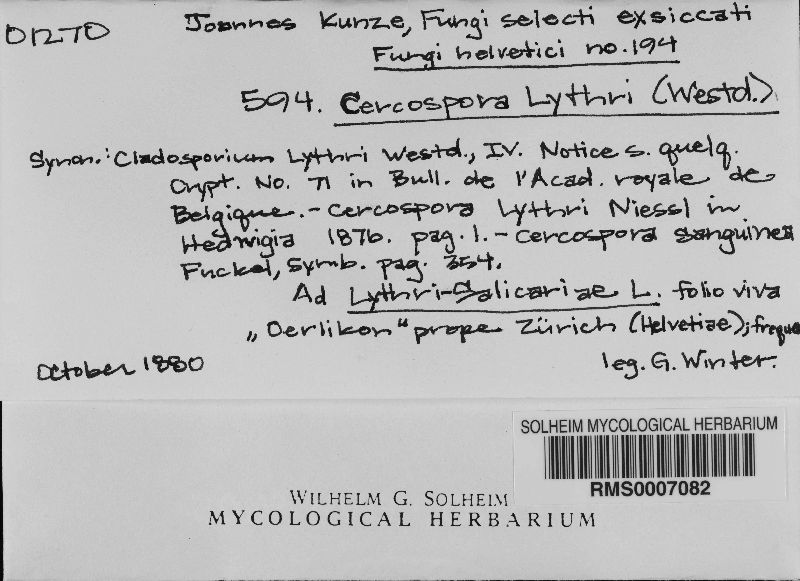 Joannes Kunze, Fungi selecti exsiccati
Fungi helvetici no. 194
594. Cercospora Lythri (Westd.)
Synon.: Cladosporium Lythri Westd., IV. Notice s. quelq.
Crypt. No. 71 in Bull. de l'Acad. royale de
Belgique. - Cercospora Lythri Niessl in
Hedwigia 1876. pag. 1. - Cercospora sanguinea
Fuckel, Symb. pag. 354.
Ad Lythri-Salicariae L. folio viva
„Oerlikon“ prope Zürich (Helvetiae); freque
October 1880
leg. G. Winter.
SOLHEIM MYCOLOGICAL HERBARIUM
RMS0007082
WILHELM G. SOLHEIM
MYCOLOGICAL HERBARIUM